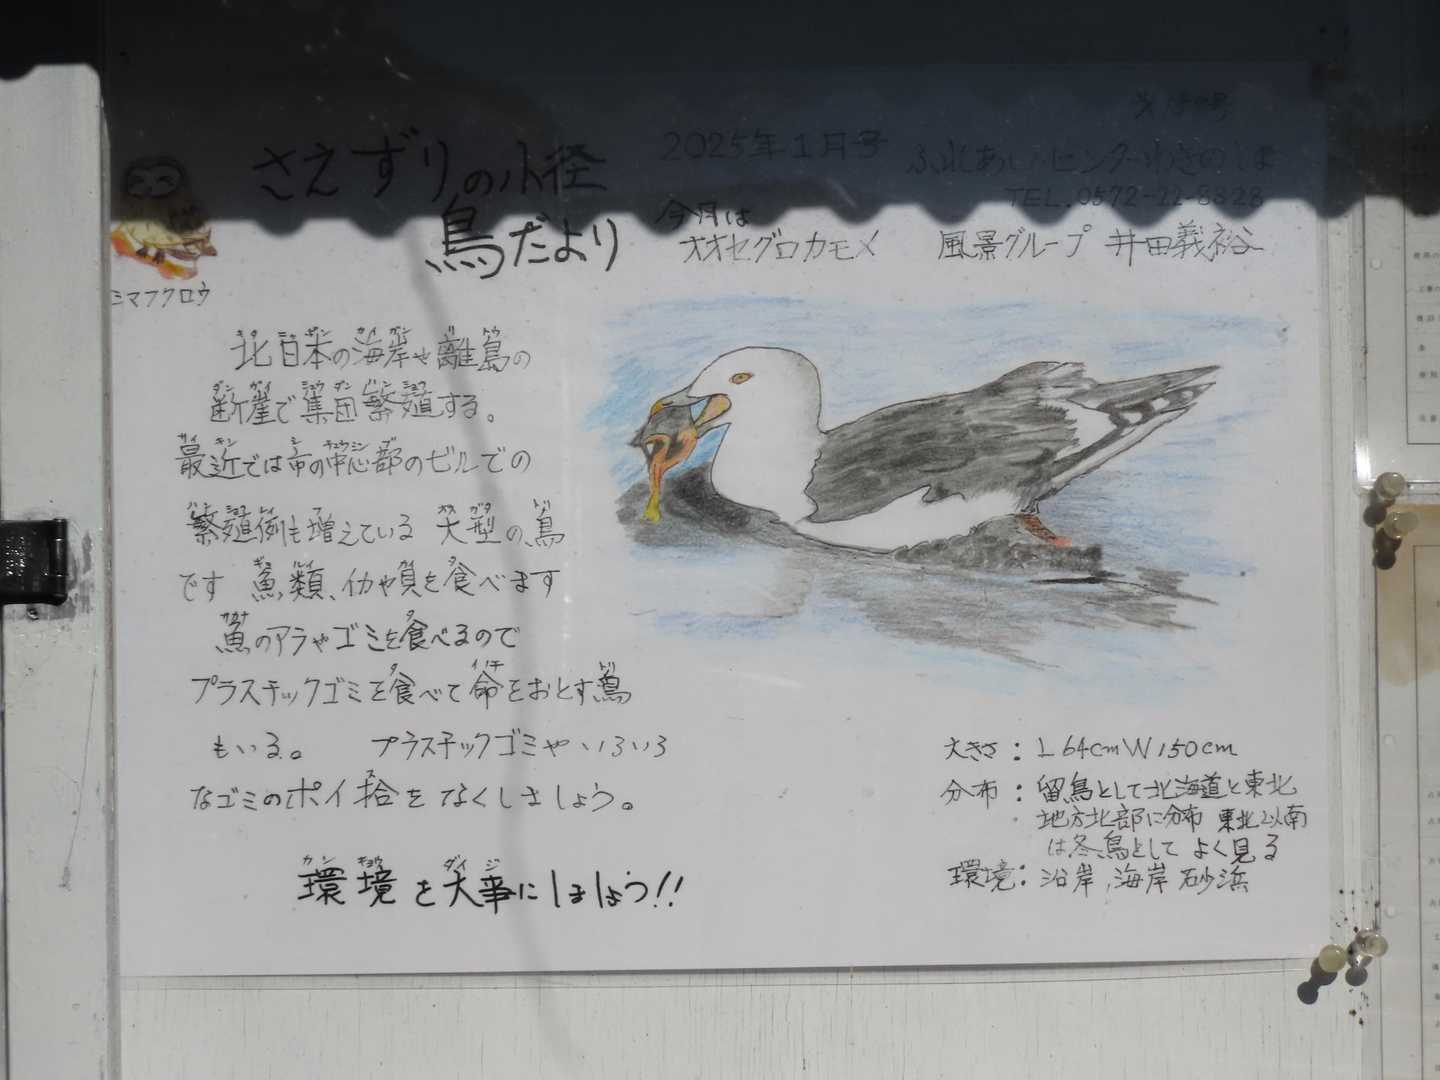 さえずりの小径
鳥だより
2025年1月号
今月は
オオセグロカモメ
ふれあいセンターわきのしま
TEL.0572-22-8828
風景グループ 井田義裕
シマフクロウ
北日本の海岸や離島の
断崖で集団繁殖する。
最近では市の中心部のビルでの
繁殖例も増えている 大型の鳥
です 魚類、イカや貝を食べます
魚のアラやゴミを食べるので
プラスチックゴミを食べて命をおとす鳥
もいる。 プラスチックゴミやいろいろ
なゴミのポイ捨をなくしましょう。
環境を大事にしましょう!!
大きさ:L64cmW150cm
分布:留鳥として北海道と東北
地方北部に分布 東北以南
は冬鳥としてよく見る
環境:沿岸,海岸 砂浜